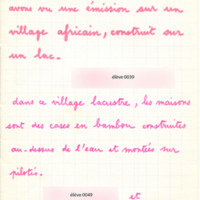 avons vu une émission sur un
village africain, construit sur
un lac.
élève 0039
dans ce village lacustre, les maisons
sont des cases en bambou construites
au-dessus de l'eau et montées sur
pilotis.
élève 0049
et